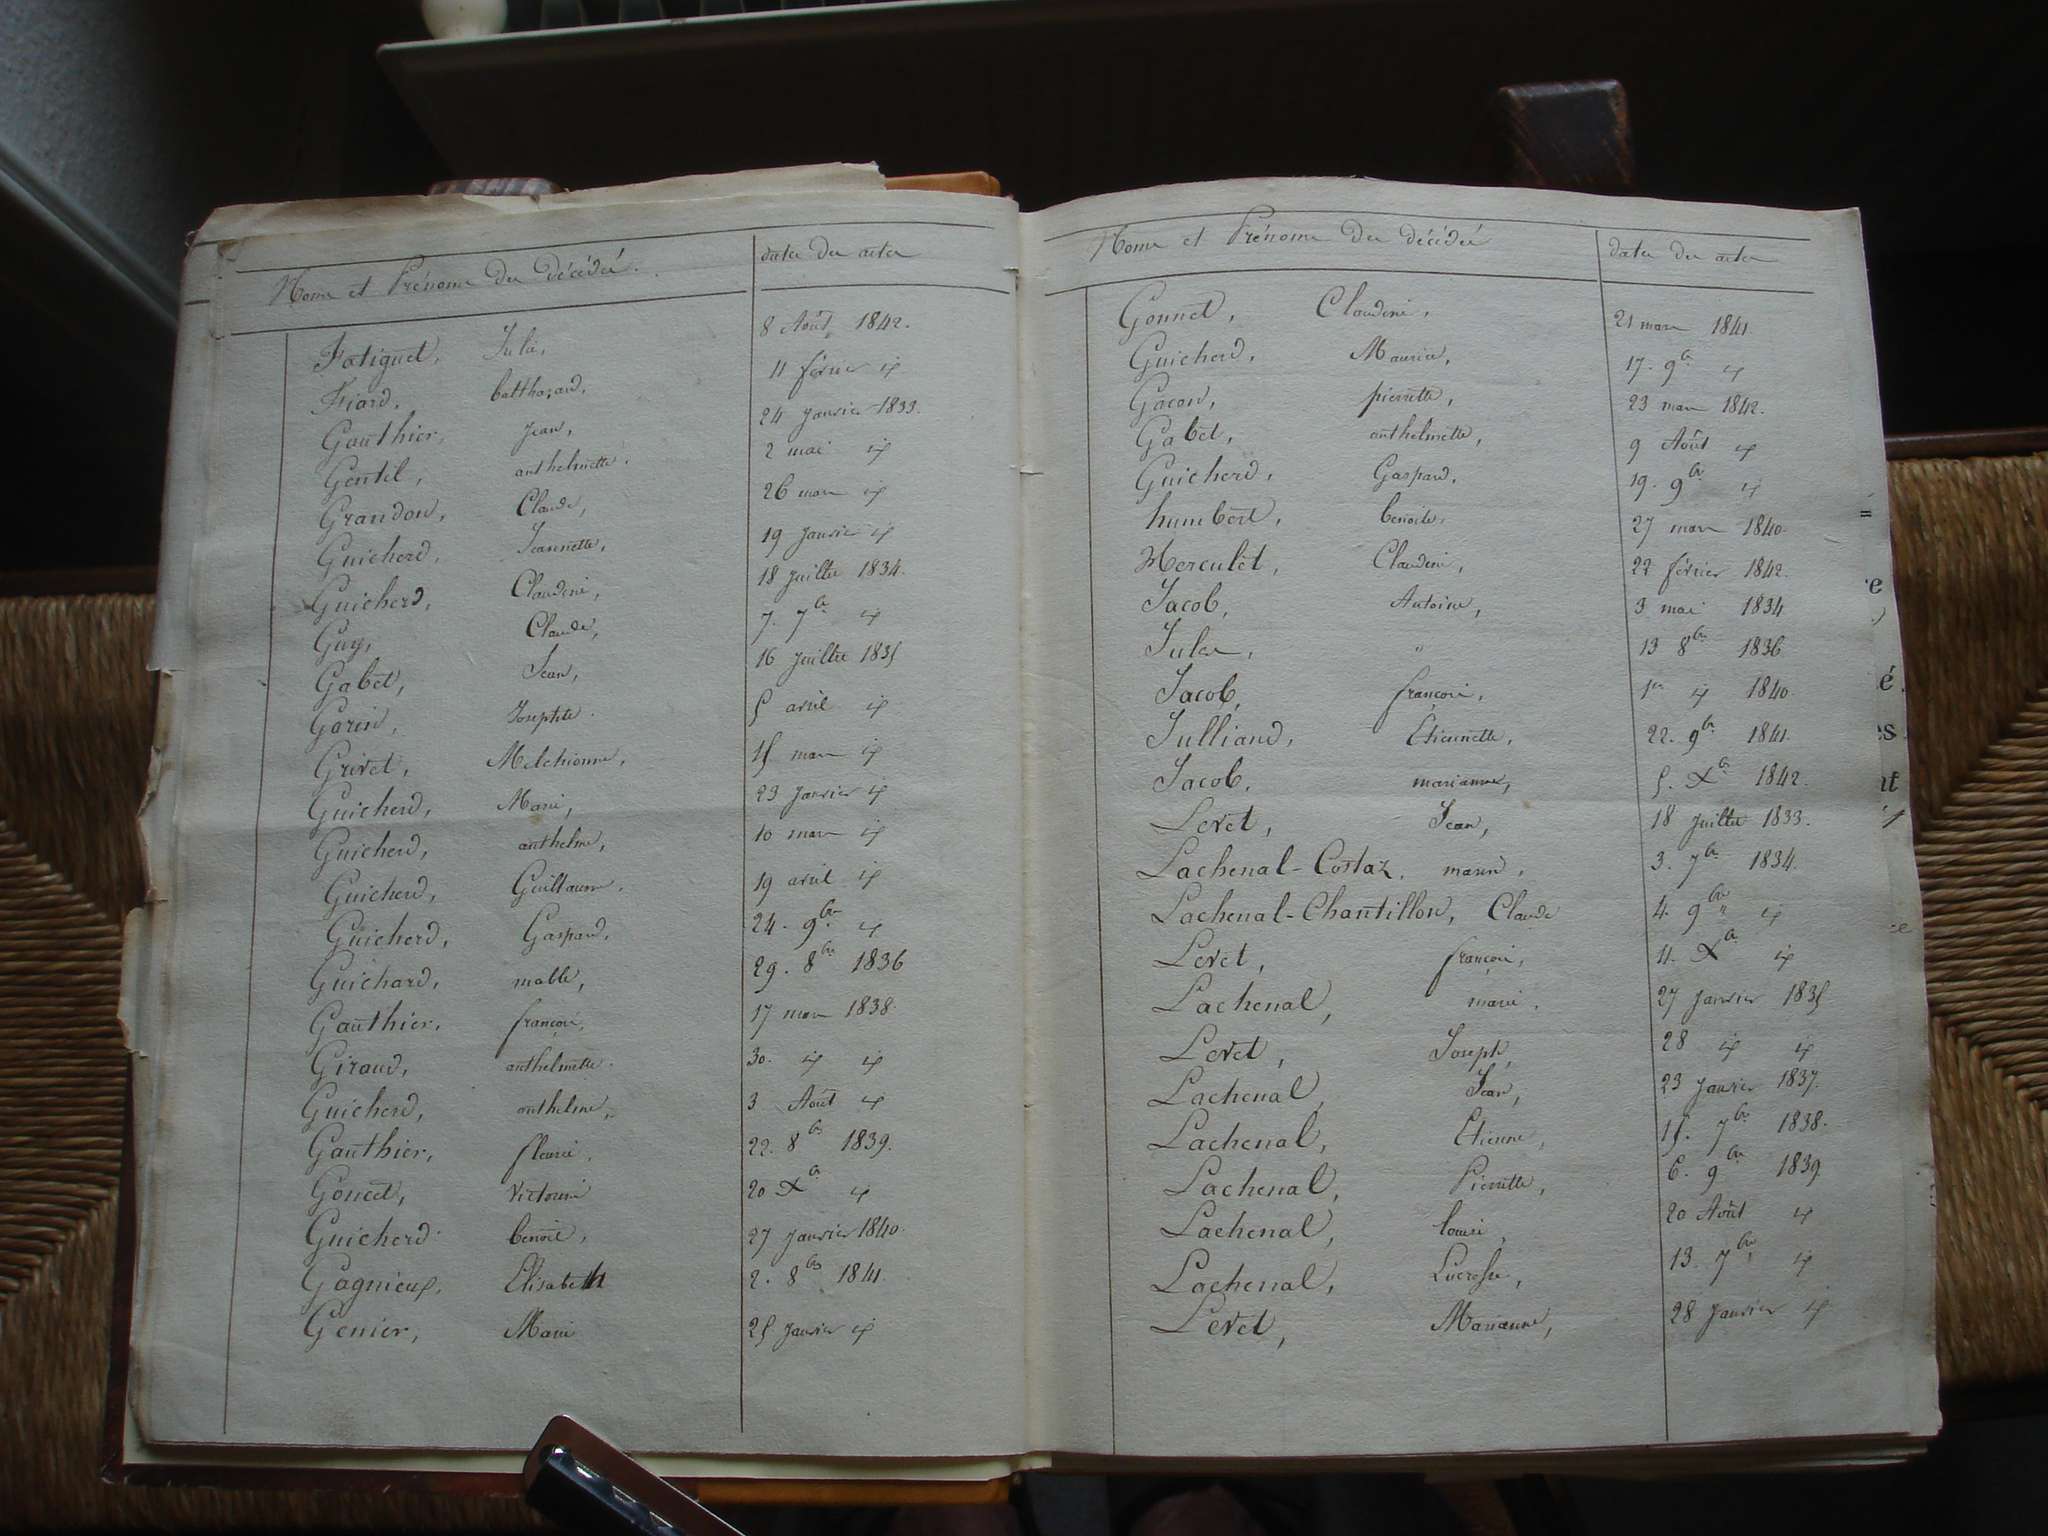 Noms et Prénoms des Décédés. dates des actes
Fatiguet, Julie, 8 Août 1842.
Fiard, balthazard, 11 février id
Gauthier, Jean, 24 Janvier 1833.
Gentil, anthelmette. 2 mai id
Grandon, Claude, 26 mars id
Guicherd, Jeannette, 19 Janvier id
Guicherd, Claudine, 18 Juillet 1834.
Guy, Claude, 7. 7bre id
Gabet, Jean, 16 Juillet 1835
Garin, Josephte. 5 avril id
Grivet, Melchionne, 15 mars id
Guicherd, Marie, 23 Janvier id
Guicherd, anthelme, 10 mars id
Guicherd, Guillaume. 19 avril id
Guicherd, Gaspard, 24. 9bre id
Guichard, mable, 29. 8bre 1836
Gauthier, françois, 17 mars 1838.
Giraud, anthelmette. 30. id id
Guicherd, anthelme, 3 Août id
Gauthier, fleurie, 22. 8bre 1839.
Goncet, Victoire 20 Xbre id
Guicherd benoit, 27 Janvier 1840.
Gagnieux, Elisabeth 2. 8bre 1841.
Génier, Marie 25 Janvier id
Noms et Prénoms des décédés dates des actes
Gonnet, Claudine, 21 mars 1841
Guicherd, Maurice, 17. 9bre id
Gacon, pierrette, 23 mars 1842.
Gabet, anthelmette, 9 Août id
Guicherd, Gaspard, 19. 9bre id
humbert, benoite, 27 mars 1840.
Herculet, Claudine, 22 février 1842.
Jacob, Antoine, 3 mai 1834
Jules, " 13 8bre 1836
Jacob, françois, 1er id 1840.
Julliand, Etiennette, 22. 9bre 1841.
Jacob, marianne, 5. Xbre 1842.
Levet, Jean, 18 Juillet 1833.
Lachenal-Costaz, marin, 3. 7bre 1834.
Lachenal-Chantillon, Claude 4. 9bre id
Levet, françois, 11. Xbre id
Lachenal, marie. 27 Janvier 1835
Levet, Joseph, 28 id id
Lachenal, Jean, 23 Janvier 1837.
Lachenal, Etienne, 15. 7bre 1838.
Lachenal, Pierrette, 6. 9bre 1839
Lachenal, louise, 20 Août id
Lachenal, Lucresse, 13. 7bre id
Levet, Marianne, 28 Janvier id